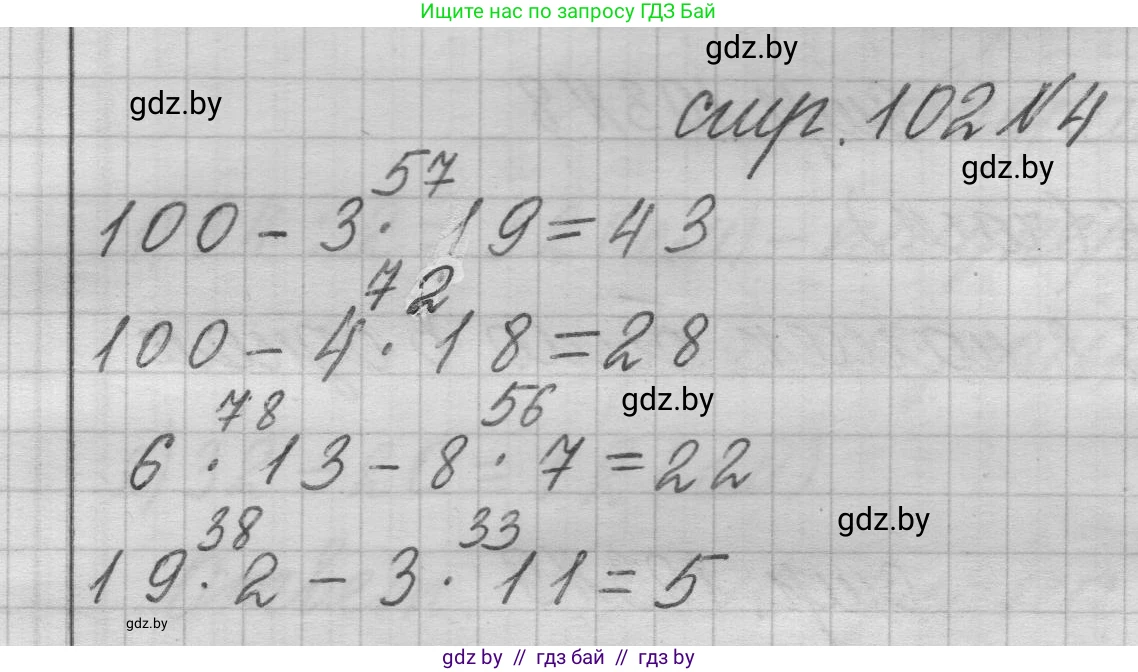 Ищите нас по запросу ГДЗ Бай
gdz.by
gdz.by
стр. 102 №4
gdz.by
57
100 - 3 · 19 = 43
72
100 - 4 · 18 = 28
78 56
gdz.by
6 · 13 - 8 · 7 = 22
38 33
gdz.by
19 · 2 - 3 · 11 = 5
gdz.by
gdz by // гдз бай // гдз by